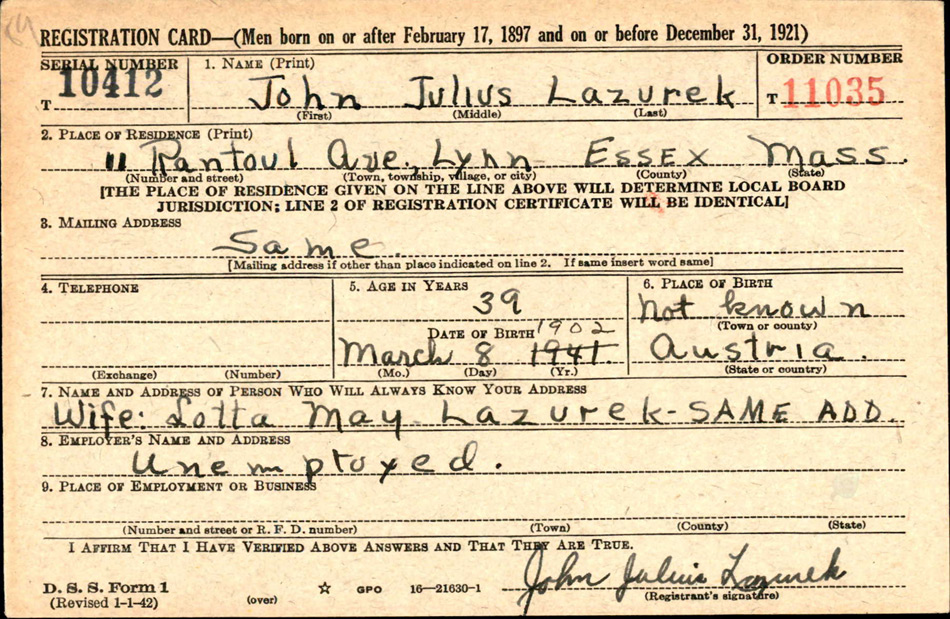 REGISTRATION CARD—(Men born on or after February 17, 1897 and on or before December 31, 1921)
SERIAL NUMBER 1. NAME (Print) ORDER NUMBER
T 10412 John Julius Lazurek T 11035
(First) (Middle) (Last)
2. PLACE OF RESIDENCE (Print)
11 Rantoul Ave. Lynn Essex Mass.
(Number and street) (Town, township, village, or city) (County) (State)
[THE PLACE OF RESIDENCE GIVEN ON THE LINE ABOVE WILL DETERMINE LOCAL BOARD
JURISDICTION; LINE 2 OF REGISTRATION CERTIFICATE WILL BE IDENTICAL]
3. MAILING ADDRESS
Same.
[Mailing address if other than place indicated on line 2. If same insert word same]
4. TELEPHONE 5. AGE IN YEARS 6. PLACE OF BIRTH
39 not known
(Town or county)
DATE OF BIRTH 1902
March 8 1941 Austria.
(Exchange) (Number) (Mo.) (Day) (Yr.) (State or country)
7. NAME AND ADDRESS OF PERSON WHO WILL ALWAYS KNOW YOUR ADDRESS
Wife: Lotta May Lazurek- SAME ADD.
8. EMPLOYER'S NAME AND ADDRESS
Unemployed.
9. PLACE OF EMPLOYMENT OR BUSINESS
(Number and street or R. F. D. number) (Town) (County) (State)
I AFFIRM THAT I HAVE VERIFIED ABOVE ANSWERS AND THAT THEY ARE TRUE.
John Julius Lazurek
D. S. S. Form 1
(Revised 1-1-42) (over) ☆ GPO 16—21630-1 (Registrant's signature)